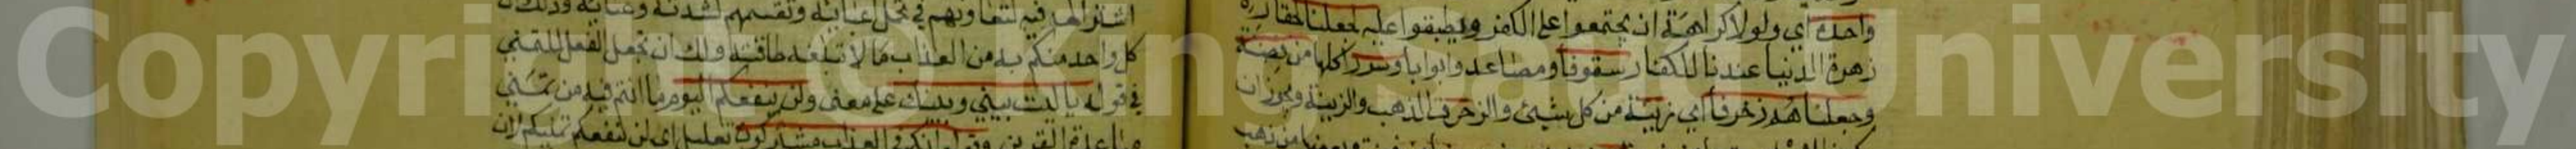 واحدة أي ولولا كراهة ان يجتمعوا على الكفر ويطبقوا عليه لجعلنا لحقارة
زهرة الدنيا عندنا للكفار سقوفا ومصاعد وابوابا وسررا كلها من فضة
وجعلنا لهم زخرفا أي زينة من كل شيئ والزخرف الذهب والزينة ويجوز ان
اشتراكها فيه لتعاونهم في تحمل اعبائه وتقسمهم لشدته وعنائه وذلك ان
كل واحد منكم به من العذاب ما لا تبلغه طاقته ولك ان تجعل الفعل للتمني
في قوله يا ليت بيني وبينك على معنى ولن ينفعكم اليوم ما انتم فيه من تمني
مباعدة القرين وقوله انكم في العذاب مشتركون تعليل اي لن ينفعكم تمنيكم لان
Copyright © King Saud University